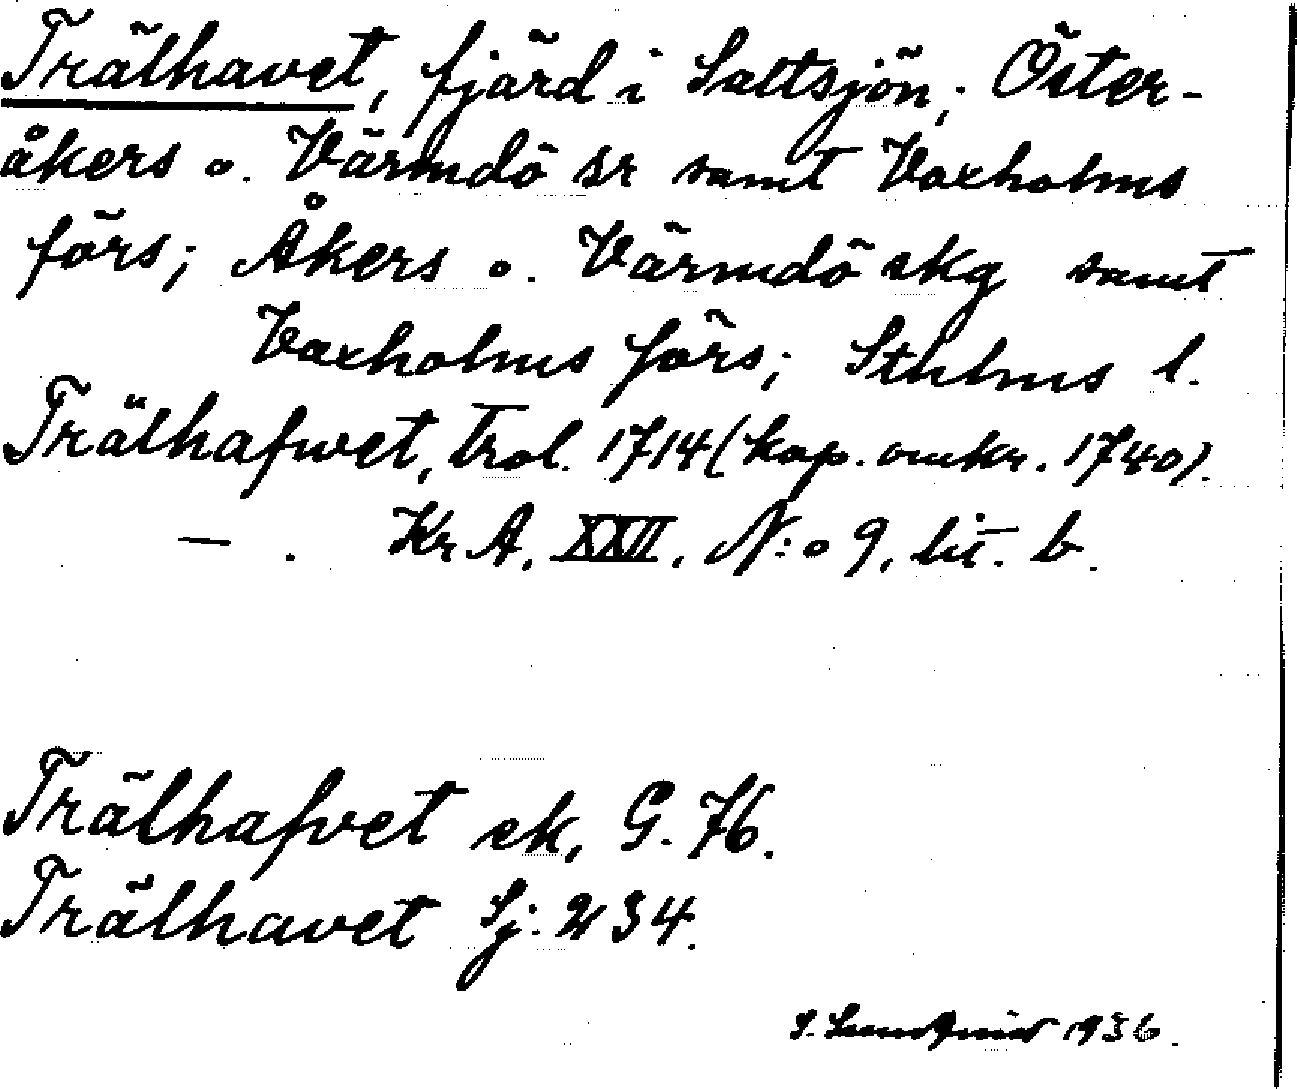 Trälhavet, fjärd i Saltsjön; Öster-
åkers o. Värmdö sr samt Vaxholms
förs; Åkers o. Värmdö skg samt
Vaxholms förs; Sthlms l.
Trälhafwet, trol. 1714 (kop. omkr. 1740).
— . KrA, XXII, N:o 9, lit. b.
Trälhafvet ek, G. 76.
Trälhavet Sj: 234.
S. 1936.